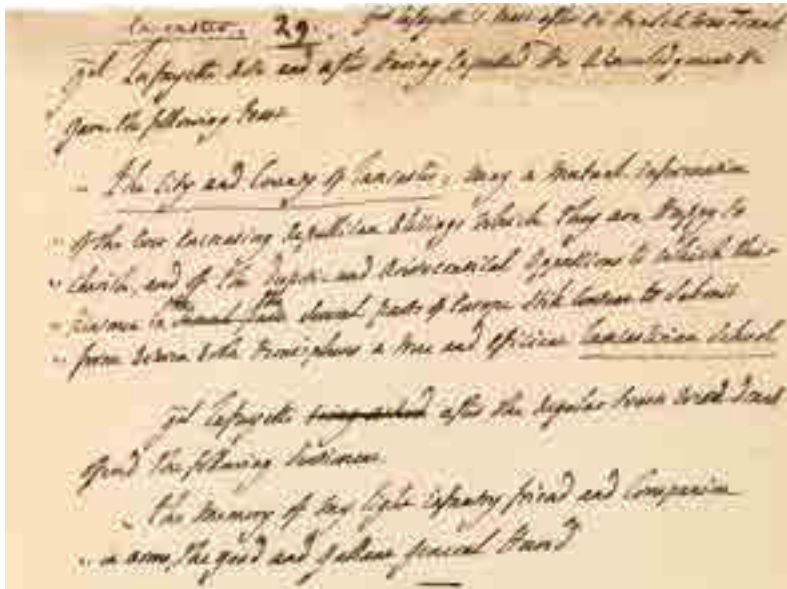 Lancaster, 29.. Gal Lafayette's Toast after the
Gal Lafayette rose and after having expressed his acknowledgments he
gave the following toast
" The City and County of Lancaster, may a mutual information
" of the ever encreasing republican blessings which they are happy to
" cherish, and of the and aristocratical oppressions to which their
" in the several parts of Europe still to submit
" form both hemispheres a true and Lancasterian School
Gal Lafayette being asked after the regular toasts
offered the following sentiment
" the memory of my light infantry friend and Companion
" in arms, the good and gallant general Hand